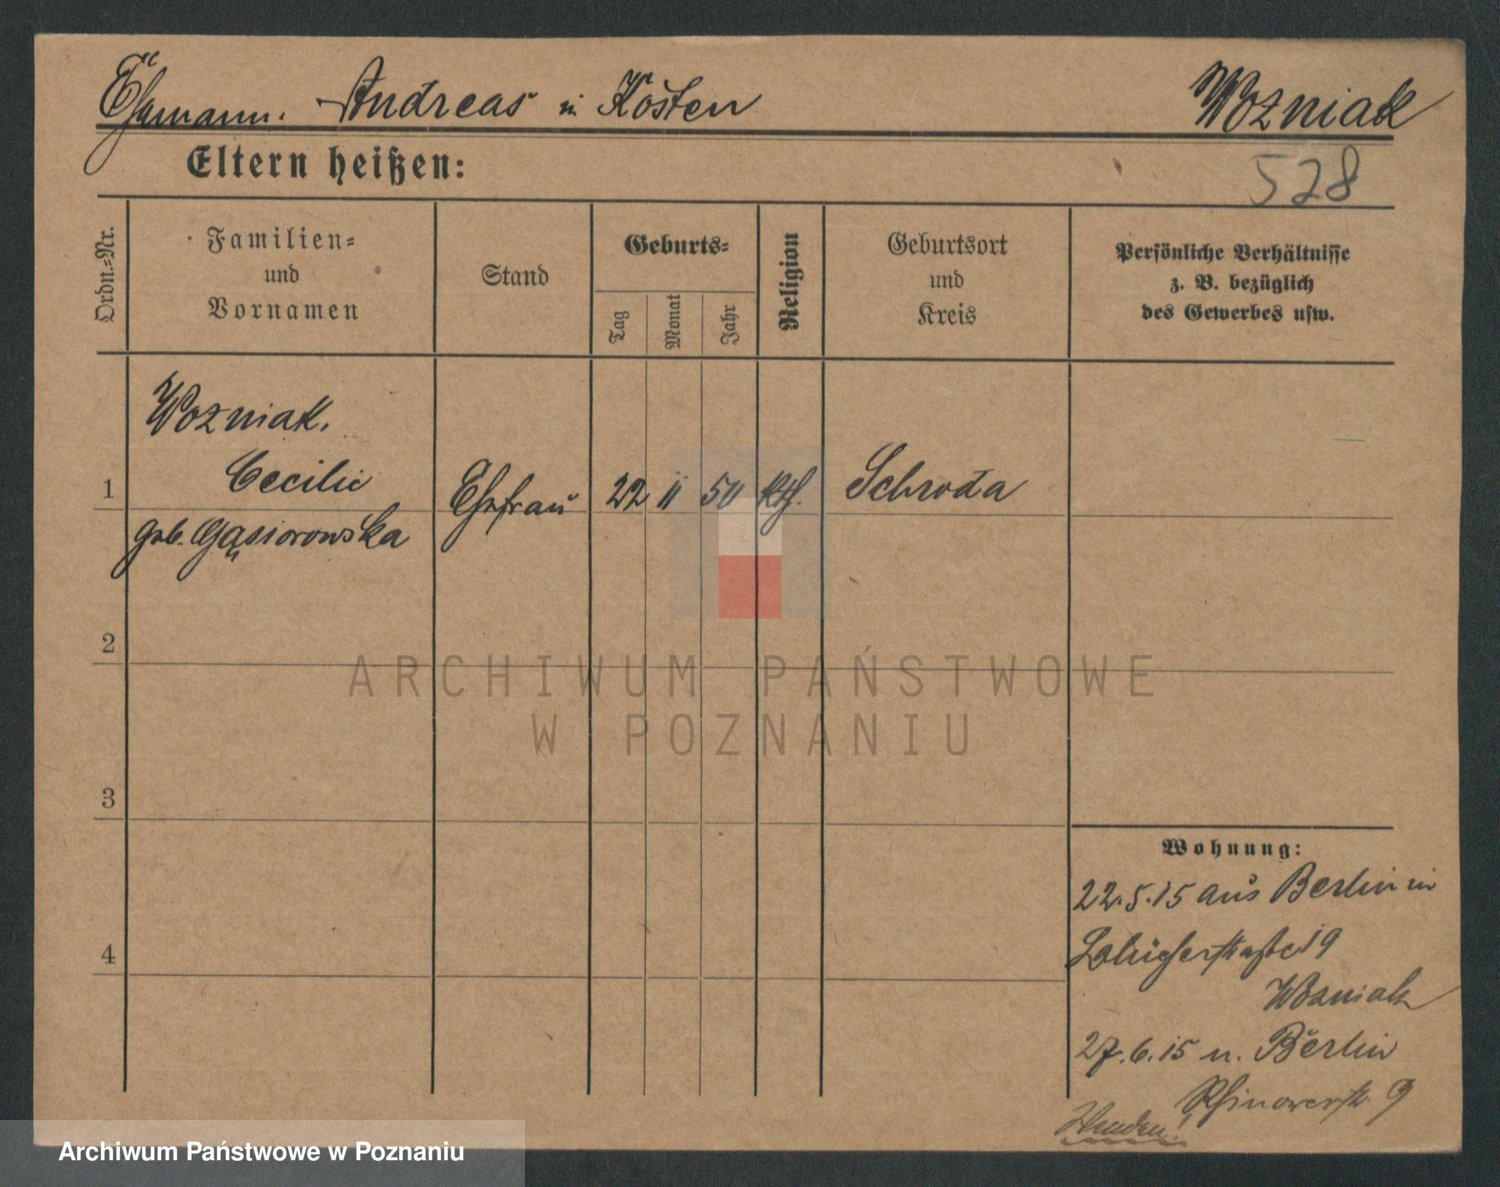 Ehemann. Andreas in Kosten Wozniak
Eltern heißen:
528
Ordn.=Nr.
Familien=
und
Vornamen
Stand
Geburts=
Tag
Monat
Jahr
Religion
Geburtsort
und
Kreis
Persönliche Verhältnisse
z. B. bezüglich
des Gewerbes usw.
Wozniak.
Cecilie
1 Ehefrau 22 11 50 kth. Schroda
geb. Gąsiorowska
2
3
4
Wohnung:
22.5.15 aus Berlin in
19
Wozniak
27.6.15 n. Berlin
Rhinowerstr. 9
Wenden!
ARCHIWUM PAŃSTWOWE
W POZNANIU
Archiwum Państwowe w Poznaniu